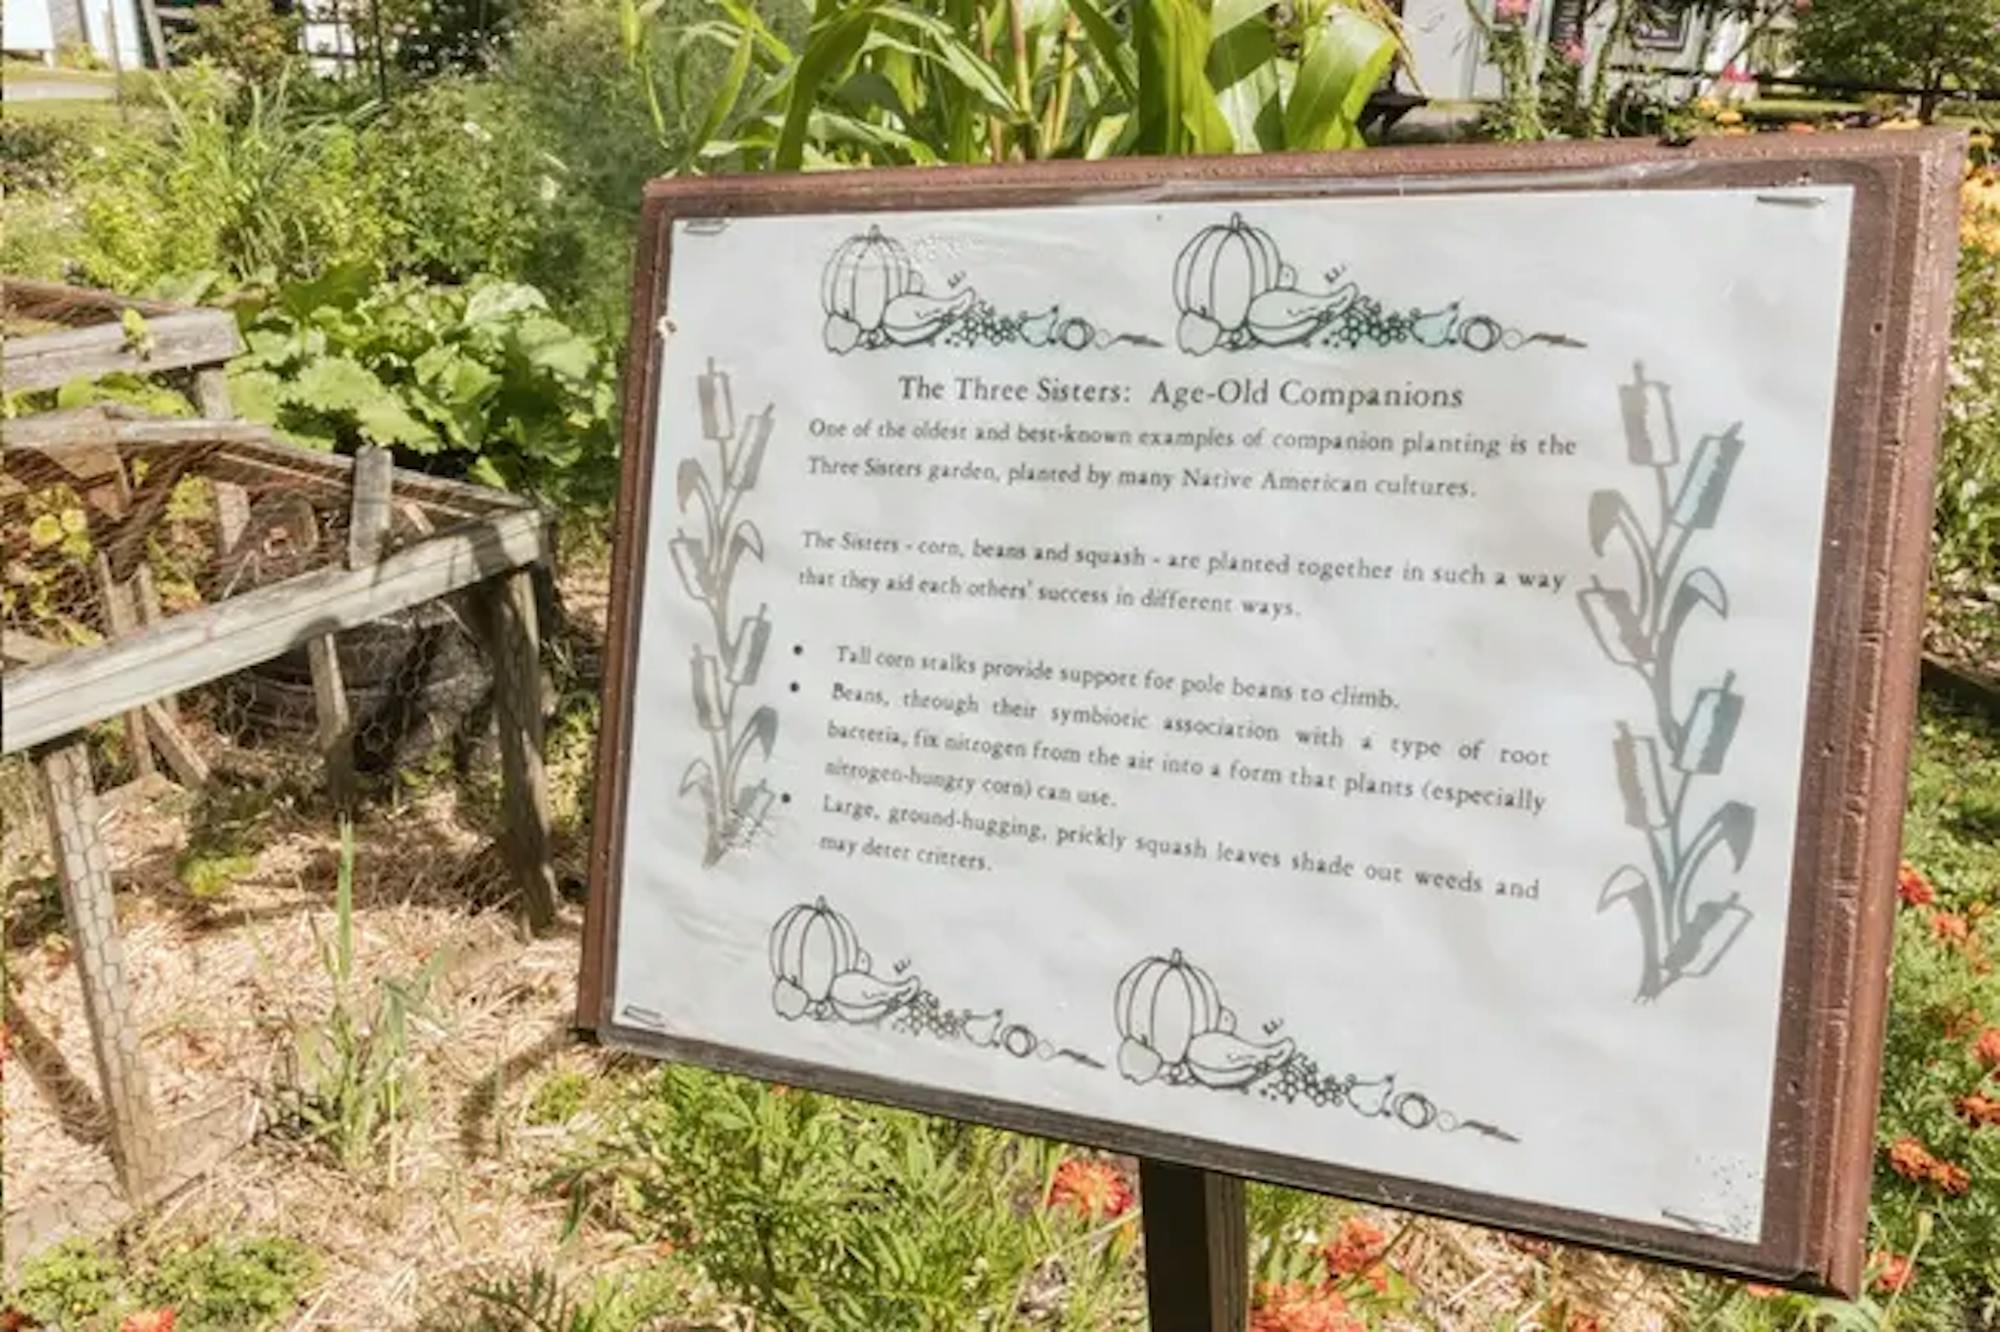 The Three Sisters: Age-Old Companions
One of the oldest and best-known examples of companion planting is the
Three Sisters garden, planted by many Native American cultures.
The Sisters - corn, beans and squash - are planted together in such a way
that they aid each others' success in different ways.
• Tall corn stalks provide support for pole beans to climb.
• Beans, through their symbiotic association with a type of root
bacteria, fix nitrogen from the air into a form that plants (especially
nitrogen-hungry corn) can use.
• Large, ground-hugging, prickly squash leaves shade out weeds and
may deter critters.